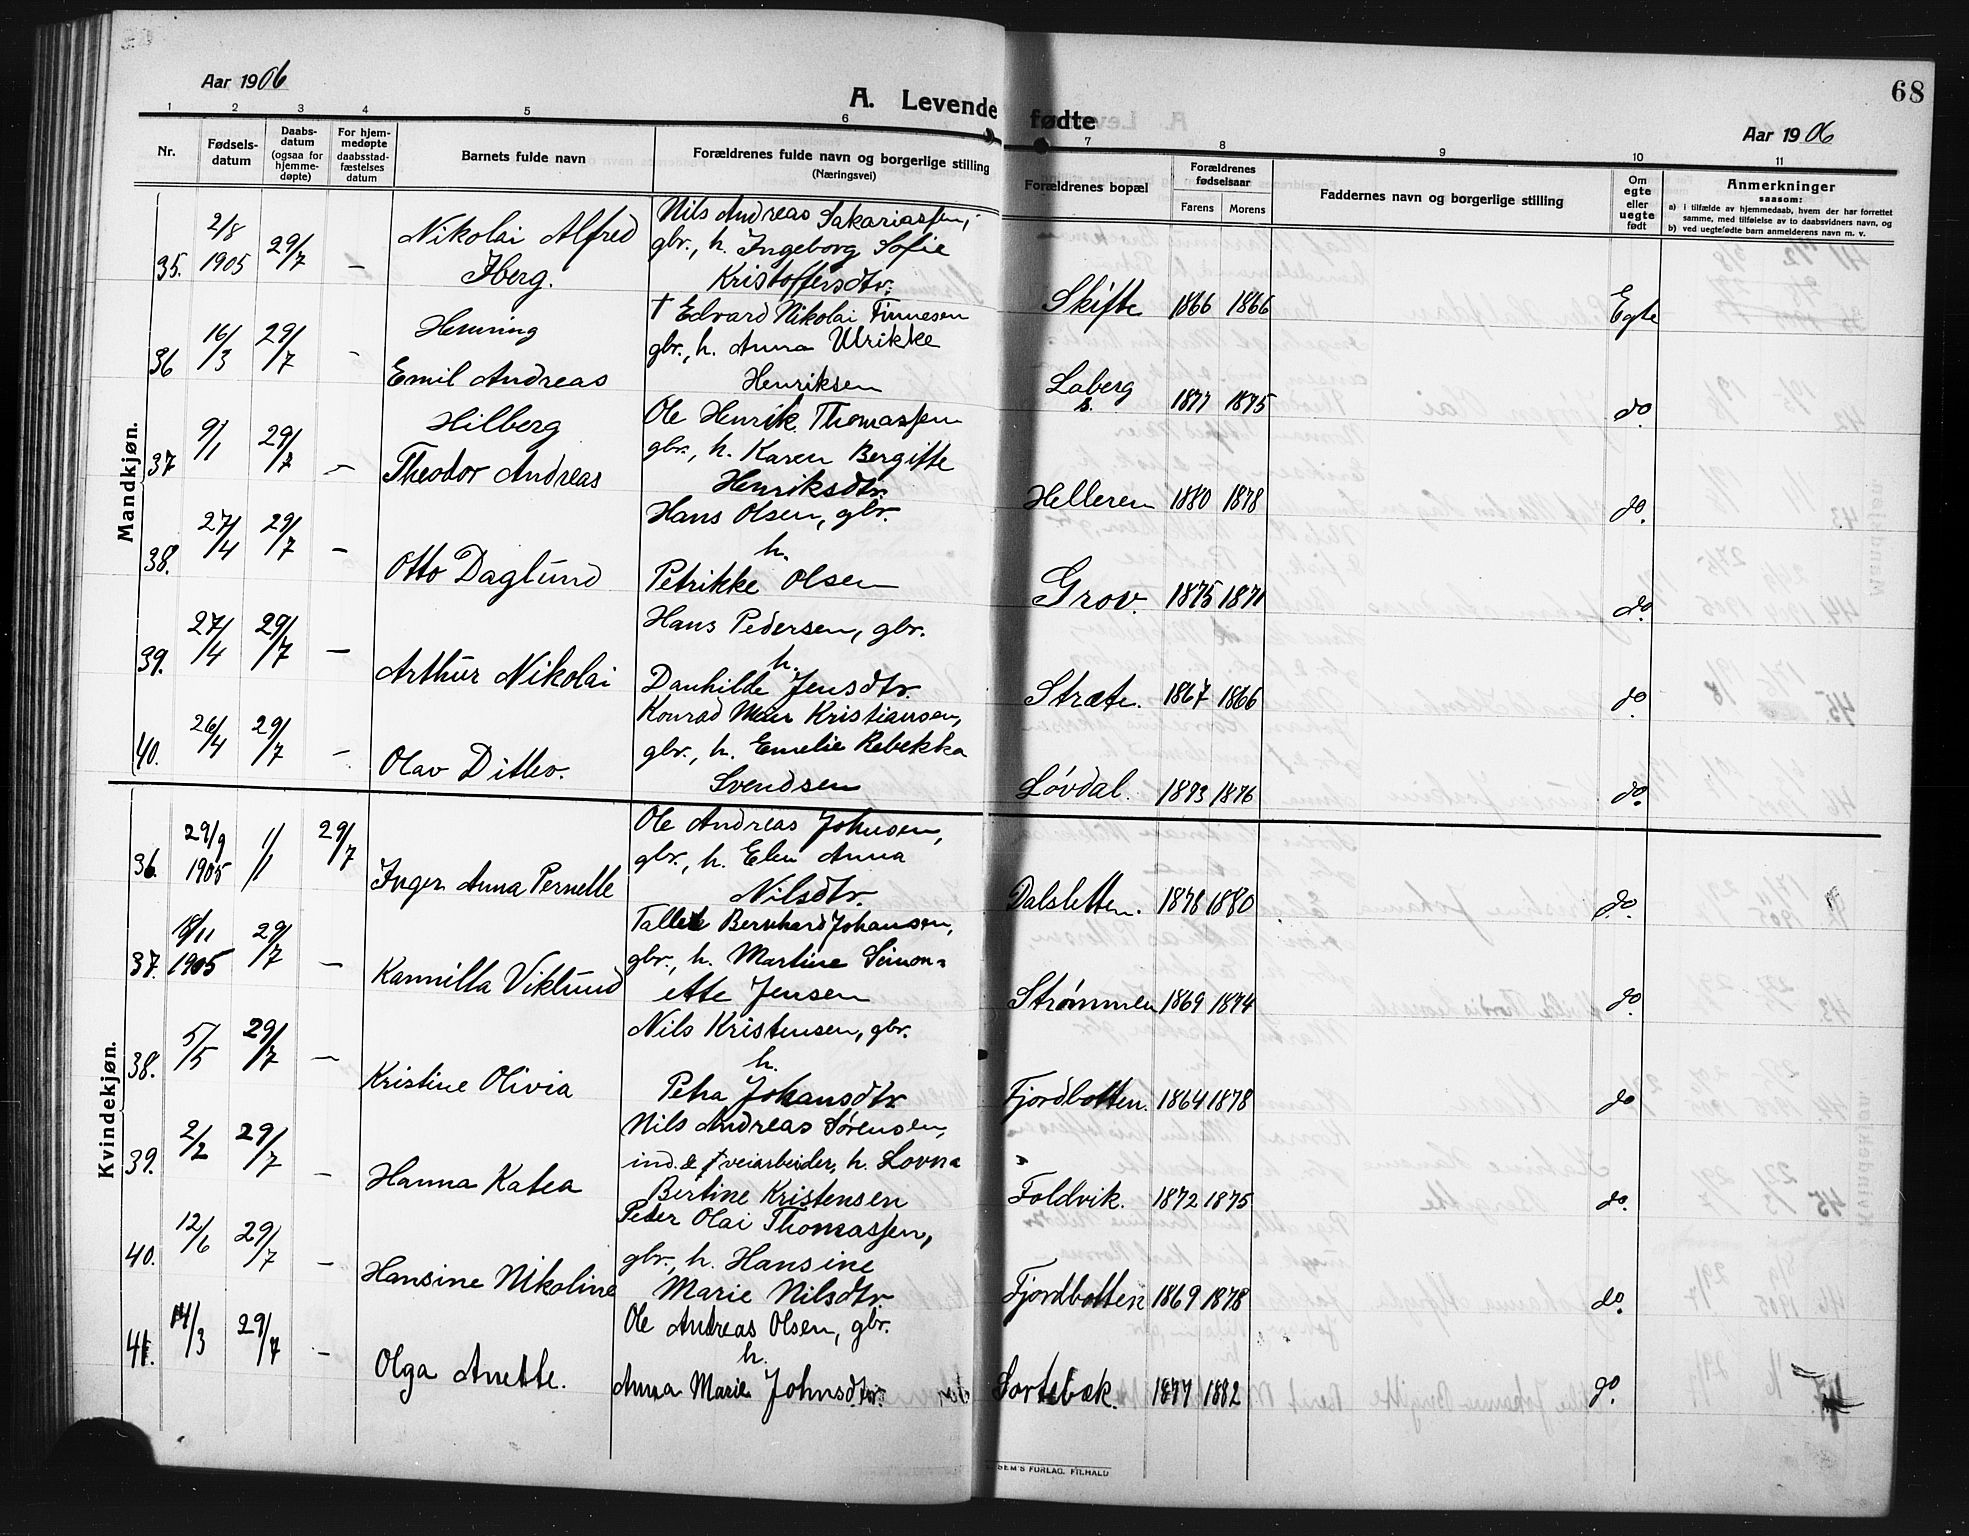 68
Aar 1906
A. Levende fødte
Aar 1906
1 2 3 4 5 6 7 8 9 10 11
Nr.
Fødsels-
datum
Daabs-
datum
(ogsaa for
hjemme-
døpte)
For hjem-
medøpte
daabsstad-
fæstelses
datum
Barnets fulde navn
Forældrenes fulde navn og borgerlige stilling
(Næringsvei)
Forældrenes bopæl
Forældrenes
fødselsaar
Farens Morens
Faddernes navn og borgerlige stilling
Om
egte
eller
uegte
født
Anmerkninger
saasom:
a) i tilfælde av hjemmedaab, hvem der har forrettet
samme, med tilføielse av to daabsvidners navn, og
b) ved uegtefødte barn anmelderens navn m. v.
Mandkjøn.
35. 2/8 1905 29/7 –
Nikolai Alfred
Iberg.
Nils Andreas Sakariassen,
gbr., h. Ingeborg Sofie
Kristoffersdtr.
Skifte 1866 1866 Egte
36 16/3 29/7 –
Henning
Emil Andreas
† Edvard Nikolai Finnesen
gbr., h. Anna Ulrikke
Henriksen
Laberg
s. 1877 1875 do.
37 9/1 29/7 –
Hilberg
Theodor Andreas
Ole Henrik Thomassen
gbr., h. Karen Bergitte
Henriksdtr.
Helleren 1880 1878 do.
38. 27/4 29/7 –
Otto Daglund
Hans Olsen, gbr.
h.
Petrikke Olsen
Grov. 1875 1871 do.
39. 27/4 29/7 –
Arthur Nikolai
Hans Pedersen, gbr.
h.
Danhilde Jensdtr.
Stræte. 1867 1866 do.
40. 26/4 29/7 –
Olav Ditlev.
Konrad Meier Kristiansen,
gbr., h. Emelie Rebekka
Svendsen
Løvdal. 1873 1876 do.
Kvindekjøn.
36. 29/9 1905 1/1 29/7
Inger Anna Pernelle
Ole Andreas Johnsen,
gbr., h. Elen Anna
Nilsdtr.
Dalsletten. 1878 1880 do.
37. 18/11 1905 29/7 –
Kamilla Viklund
Tallek Bernhard Johansen,
gbr., h. Martine Simon=
ette Jensen
Strømmen 1869 1874 do.
38. 5/5 29/7 –
Kristine Olivia
Nils Kristensen, gbr.
h.
Petra Johansdtr
Fjordbotten. 1864 1878 do
39. 2/2 29/7 –
Hanna Katea
Nils Andreas Sørensen,
ind. & veiarbeider, h. Lovna
Bertine Kristensen
Foldvik. 1872 1875 do.
40. 12/6 29/7 –
Hansine Nikoline
Peder Olai Thomassen,
gbr., h. Hansine
Marie Nilsdtr.
Fjordbotten 1869 1878 do.
41. 14/3 29/7 –
Olga Anette.
Ole Andreas Olsen, gbr.
h.
Anna Marie Johnsdtr.
Sortebæk. 1877 1882 do.
SEM'S FORLAG, FILHALD